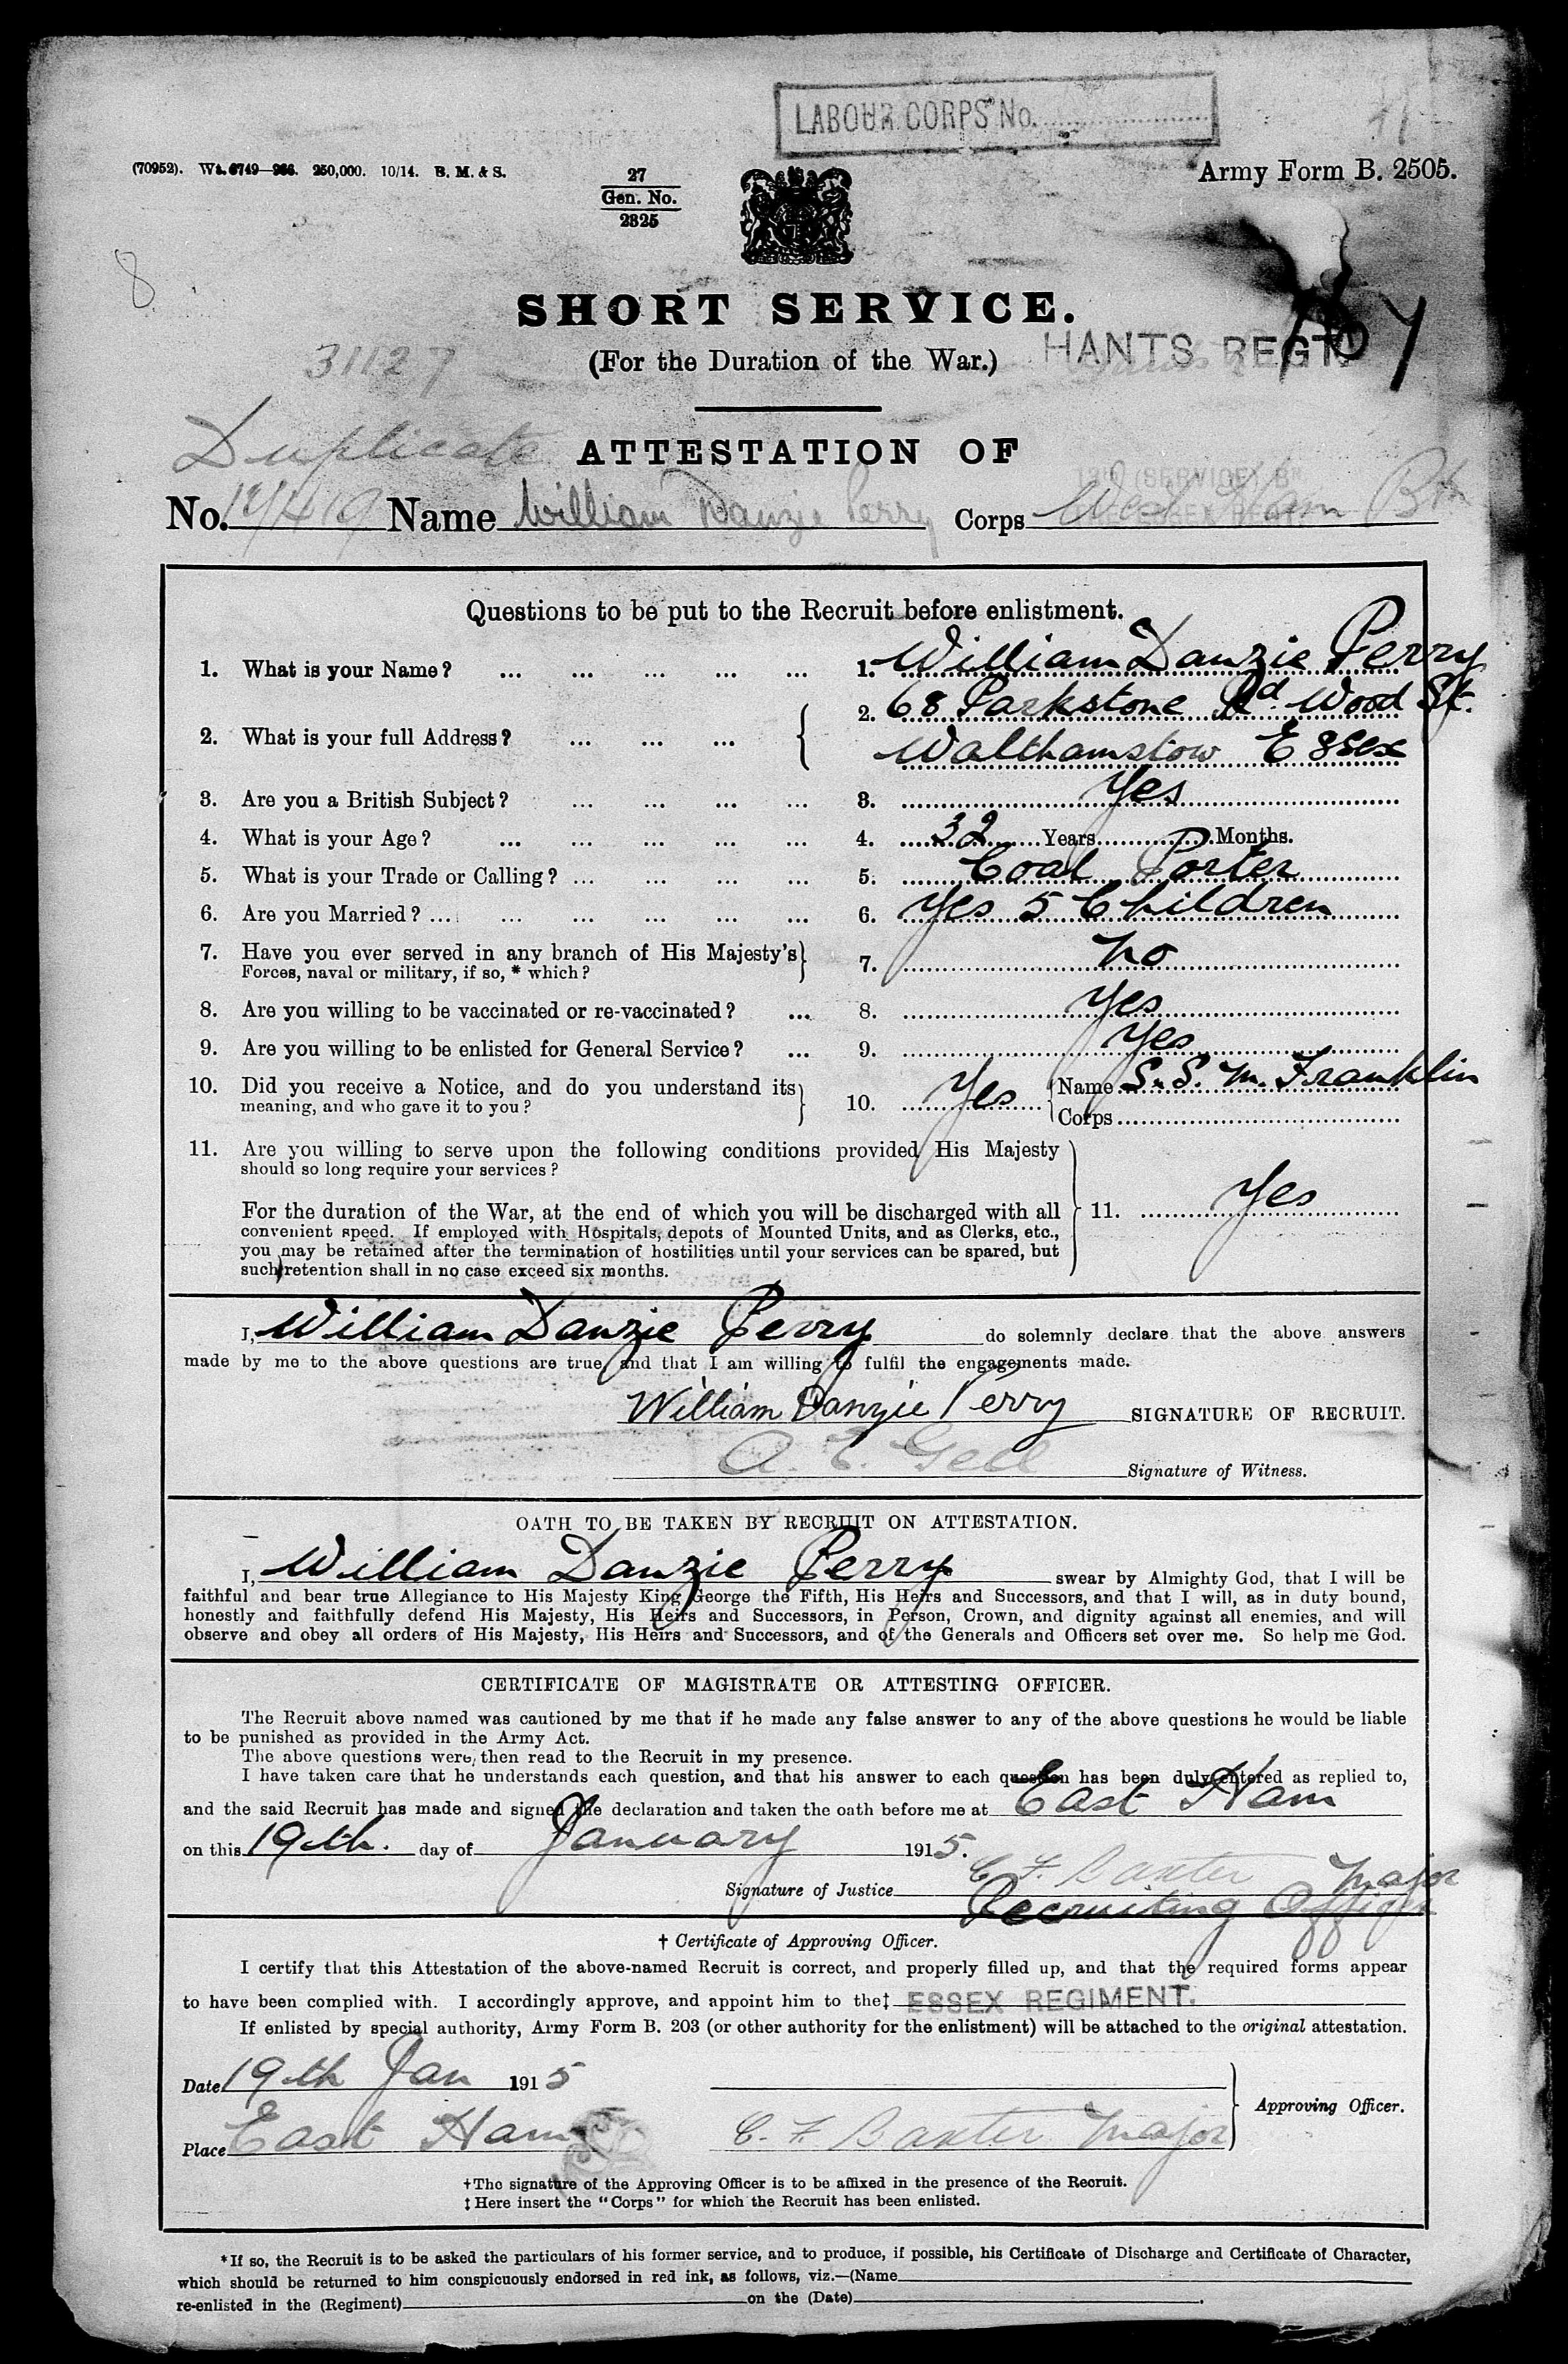 LABOUR CORPS No.
(70952). Wt. 6749—966. 250,000. 10/14. B. M. & S.
27
Gen. No.
2825
Army Form B. 2505.
8
SHORT SERVICE.
(For the Duration of the War.)
HANTS REGT
31127
Duplicate
ATTESTATION OF
No. Name William Danzie Perry Corps West Ham Bn
Questions to be put to the Recruit before enlistment.
1. What is your Name? ... ... ... ... ... 1. William Danzie Perry
2. 68 Parkstone Rd. Wood St.
2. What is your full Address? ... ... ...
Walthamstow Essex
3. Are you a British Subject? ... ... ... ... 3. Yes
4. What is your Age? ... ... ... ... ... 4. 32 Years Months.
5. What is your Trade or Calling? ... ... ... ... 5. Coal Porter
6. Are you Married? ... ... ... ... ... 6. Yes 5 Children
7. Have you ever served in any branch of His Majesty's
Forces, naval or military, if so, * which? 7. No
8. Are you willing to be vaccinated or re-vaccinated? ... 8. Yes
9. Are you willing to be enlisted for General Service? ... 9. Yes
10. Did you receive a Notice, and do you understand its
meaning, and who gave it to you? 10. Yes Name S. S. M. Franklin
Corps
11. Are you willing to serve upon the following conditions provided His Majesty
should so long require your services?
For the duration of the War, at the end of which you will be discharged with all 11. Yes
convenient speed. If employed with Hospitals, depots of Mounted Units, and as Clerks, etc.,
you may be retained after the termination of hostilities until your services can be spared, but
such retention shall in no case exceed six months.
I, William Danzie Perry do solemnly declare that the above answers
made by me to the above questions are true, and that I am willing to fulfil the engagements made.
William Danzie Perry SIGNATURE OF RECRUIT.
A. E. Gell Signature of Witness.
OATH TO BE TAKEN BY RECRUIT ON ATTESTATION.
I, William Danzie Perry swear by Almighty God, that I will be
faithful and bear true Allegiance to His Majesty King George the Fifth, His Heirs and Successors, and that I will, as in duty bound,
honestly and faithfully defend His Majesty, His Heirs and Successors, in Person, Crown, and dignity against all enemies, and will
observe and obey all orders of His Majesty, His Heirs and Successors, and of the Generals and Officers set over me. So help me God.
CERTIFICATE OF MAGISTRATE OR ATTESTING OFFICER.
The Recruit above named was cautioned by me that if he made any false answer to any of the above questions he would be liable
to be punished as provided in the Army Act.
The above questions were then read to the Recruit in my presence.
I have taken care that he understands each question, and that his answer to each question has been duly entered as replied to,
and the said Recruit has made and signed the declaration and taken the oath before me at East Ham
on this 19th. day of January 1915.
Signature of Justice C. F. Baxter Major
Recruiting Officer
† Certificate of Approving Officer.
I certify that this Attestation of the above-named Recruit is correct, and properly filled up, and that the required forms appear
to have been complied with. I accordingly approve, and appoint him to the‡ ESSEX REGIMENT.
If enlisted by special authority, Army Form B. 203 (or other authority for the enlistment) will be attached to the original attestation.
Date 19th Jan 1915
Approving Officer.
Place East Ham C. F. Baxter Major
†The signature of the Approving Officer is to be affixed in the presence of the Recruit.
‡Here insert the "Corps" for which the Recruit has been enlisted.
*If so, the Recruit is to be asked the particulars of his former service, and to produce, if possible, his Certificate of Discharge and Certificate of Character,
which should be returned to him conspicuously endorsed in red ink, as follows, viz.—(Name
re-enlisted in the (Regiment) on the (Date) .